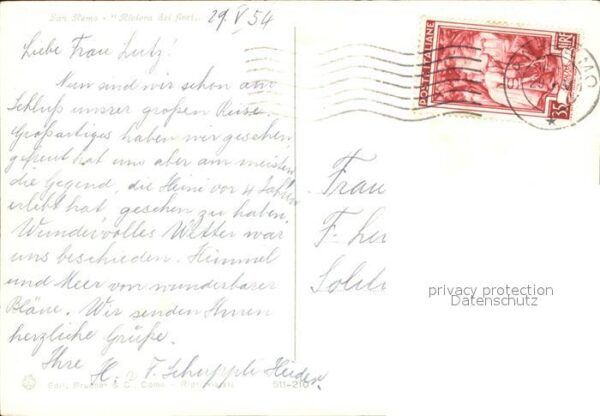 San Remo - "Riviera dei fiori"
29 V 54
Liebe Frau Lutz!
Nun sind wir schon am
Schluß unsrer großen Reise.
Großartiges haben wir gesehen,
gefreut hat uns aber am meisten
die Gegend, die Heini vor 4 Jahren
erlebt hat, gesehen zu haben.
Wundervolles Wetter war
uns beschieden. Himmel
und Meer von wunderbarer
Bläue. Wir senden Ihnen
herzliche Grüße.
Ihre H. F. Schuppli Heiden.
POSTE ITALIANE
LIRE
35
Frau
F.
privacy protection
Datenschutz